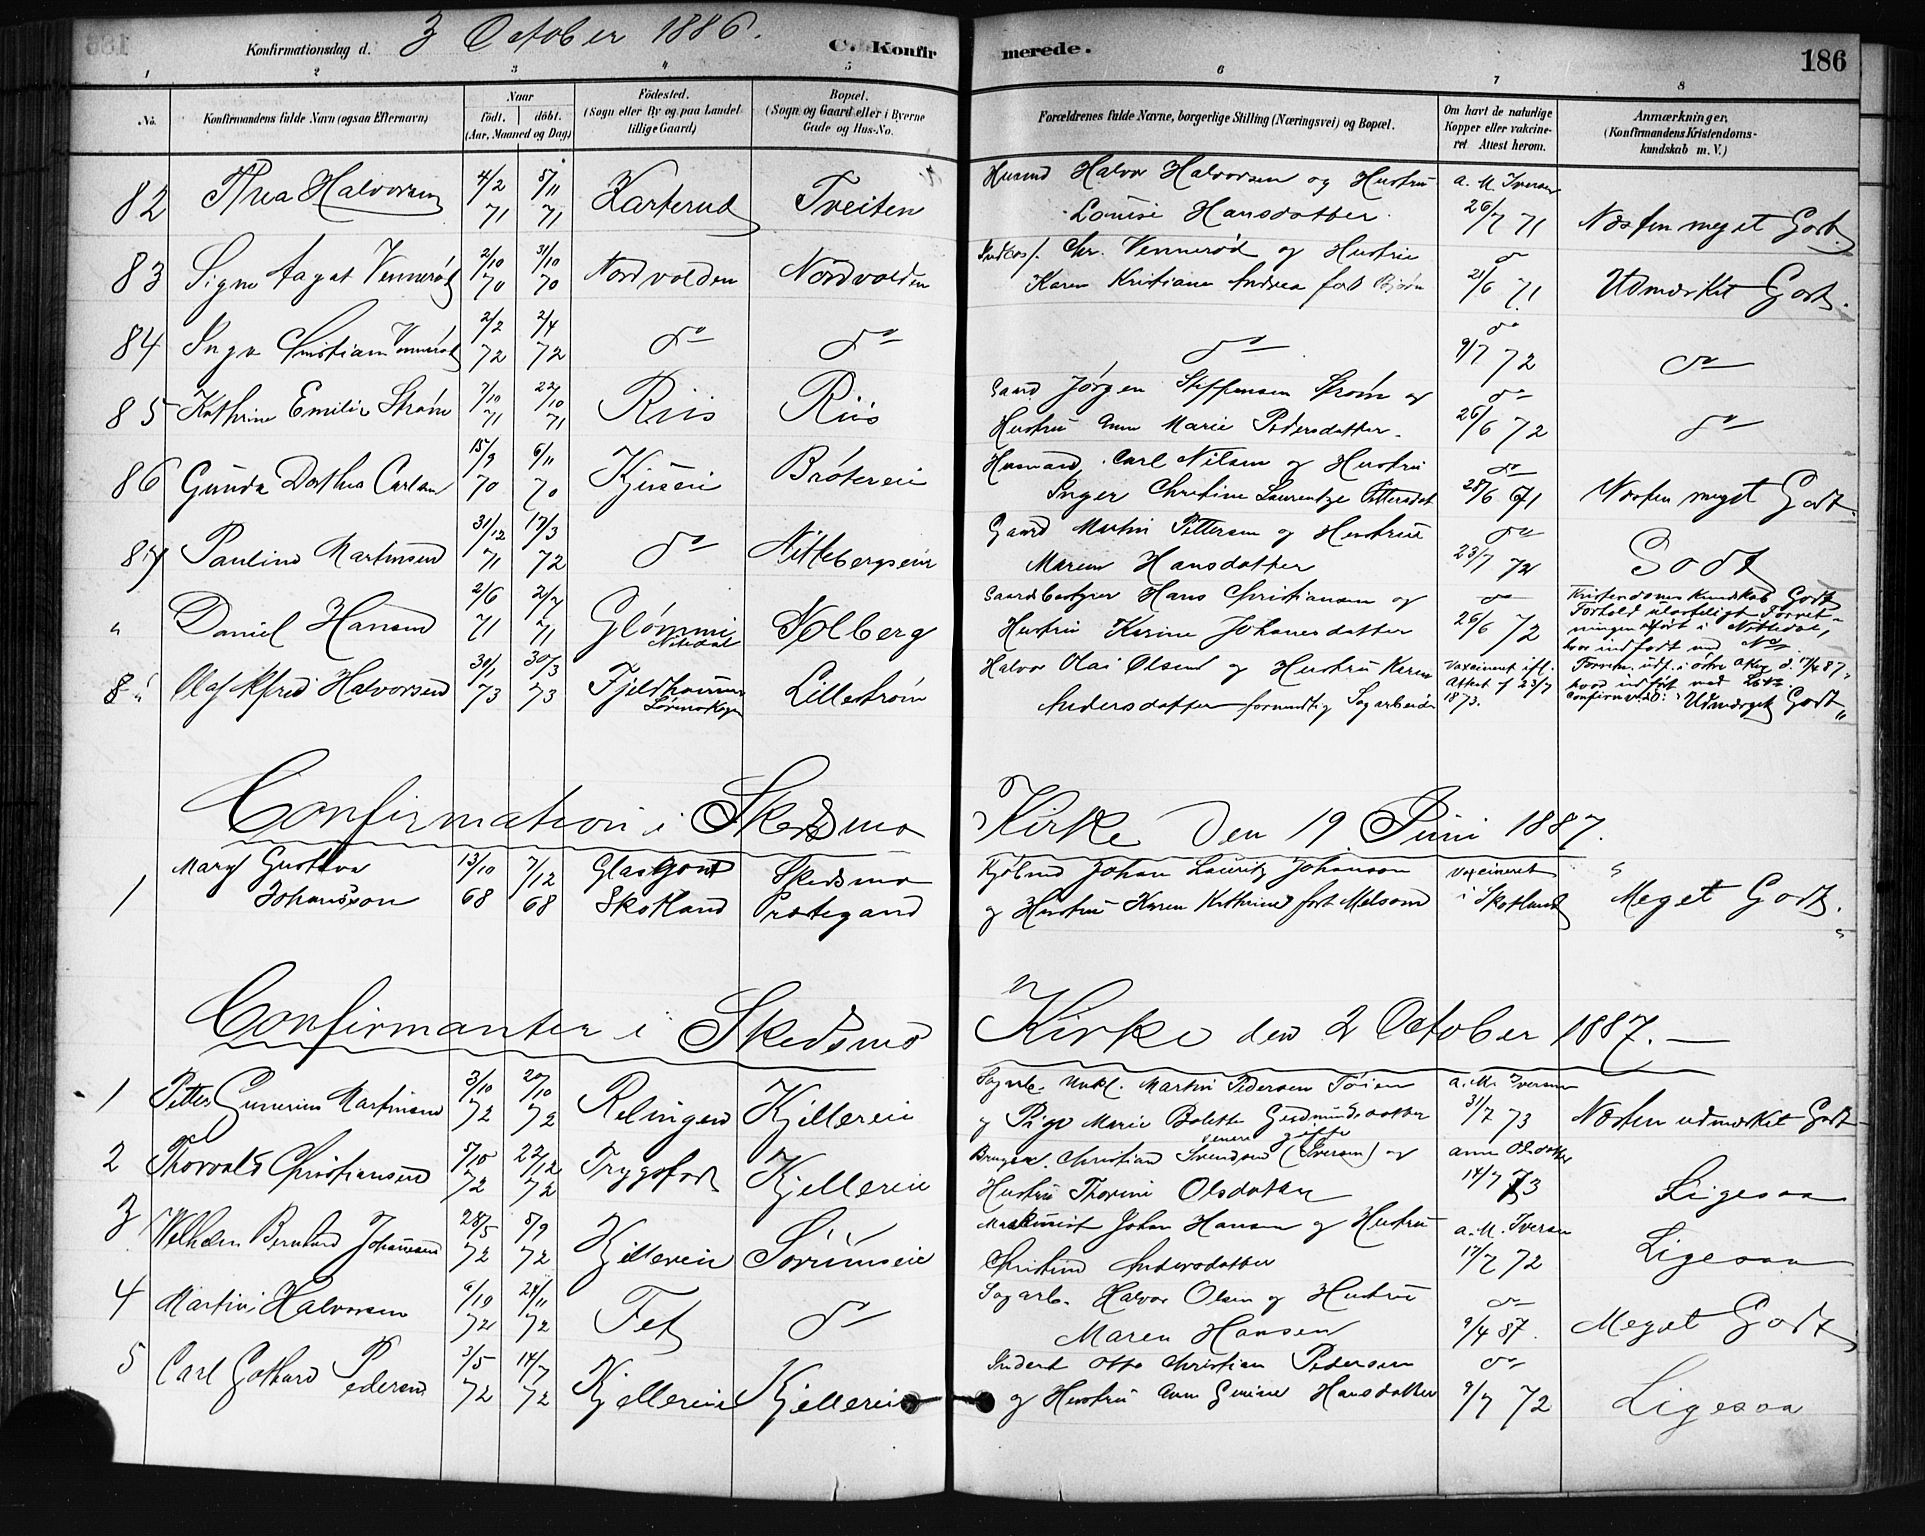 Konfirmationsdag d. 3 October 1886. C. Konfirmerede. 186
1 2 3 4 5 6 7 8
No. Konfirmandens fulde Navn (ogsaa Efternavn) Naar født. døbt. (Aar, Maaned og Dag) Fødested. (Sogn eller By og paa Landet tillige Gaard) Bopæl. (Sogn og Gaard eller i Byerne Gade og Hus-No. Forældrenes fulde Navne, borgerlige Stilling (Næringsvei) og Bopæl. Om havt de naturlige Kopper eller vakcineret Attest herom. Anmærkninger, (Konfirmandens Kristendomskundskab m. V.)
82 Thea Halvorsen 4/2 71 5/11 71 Karterud Tveiten Husmd Halvor Halvorsen og Hustru
Louise Hansdatter. a. M. Iversen 26/7 71 Næsten meget Godt.
83 Signe Aagot Vennerød 2/10 70 31/10 70 Nordvolden Nordvolden Chr. Vennerød og Hustru
Karen Kristiane Andrea født Bjørn do 21/6 71 Udmærket Godt.
84 Inga Christiane Vennerød 2/2 72 2/4 72 do do do do 9/7 72 do
85 Kathrine Emilie Strøm 7/10 71 22/10 71 Riis Riis Gaard Jørgen Steffensen Strøm og
Hustru Anne Marie Pedersdatter. do 26/6 72 do
86 Gunda Dorthea Carlsen 15/9 70 6/11 70 Brøtereie Husmand Carl Nilsen og Hustru
Inger Christine Laurentze do 28/6 71 Næsten meget Godt.
87 Pauline Martinsen 31/12 71 17/3 72 do Nittebergseie Gaard Martin Pettersen og Hustrue
Maren Hansdatter do 23/7 72 Godt
" Daniel Hansen 2/6 71 2/7 71 Glømmi Nitedal Solberg Gaardbestyrer Hans Christiansen og
Hustru Karine Johannesdatter do 26/6 72 Kristendomskundskab Godt
Forhold ulasteligt Forretningen udført i Nittedal,
hvor indført med No
88 Olaf Alfred Halvorsen 30/1 73 30/3 73 Fjeldhammer Lørenskogen Lillestrøm Halvor Olai Olsen og Hustru Karen
Andersdatter forhenværende Sagarbeider Vaxcineret ifl. Attest af 23/7 1873. Forretn. udf. i østre Aker d. 17/4 87,
hvor indført med
Confirmeret: Udmærget Godt "
Confirmation i Skedsmo Kirke Den 19 Juni 1887.
1 Mary Gustava
Johansson 13/10 68 7/12 68 Glasgow Skotland Skedsmo Præstegaard Kjøbmd Johan Lauritz Johanson
og Hustru Karen Kathrine født Melsom Vaxcineret i Skotland Meget Godt.
Confirmanter i Skedsmo Kirke den 2 October 1887. —
1 Petter Gunerius Martinsen 3/10 72 20/10 72 Relingen Kjellereie Sagarb. Unkl. Martin Pedersen
og Pige Marie Bolette Gudmundsdatter a. M. Iversen 31/7 73 Næsten udmærket Godt
2 Thorvald Christiansen 5/10 72 22/12 72 Trygstad Kjellereie Bruger. Christian Svendsen (Iversen) og
Hustru Thorine Olsdatter senere gifte Anne Olsdatter 14/7 73 Ligesaa
3 Wilhelm Bernhard Johansen 28/5 72 8/9 72 Kjellereie Sørumseie Maskinist Johan Hansen og Hustru
Christine Andersdatter a. M. Iversen 17/7 72 Ligesaa
4 Martin Halvorsen 6/10 72 24/11 72 Fet do Sagarb. Halvor Olsen og Hustru
Maren Hansen do 9/4 87. Meget Godt
5 Carl Gothard Pedersen 3/5 72 14/7 72 Kjellereie Kjellereie Inderst Otto Christian Pedersen
og Hustru Anne Gurine Hansdatter do 9/7 72 Ligesaa